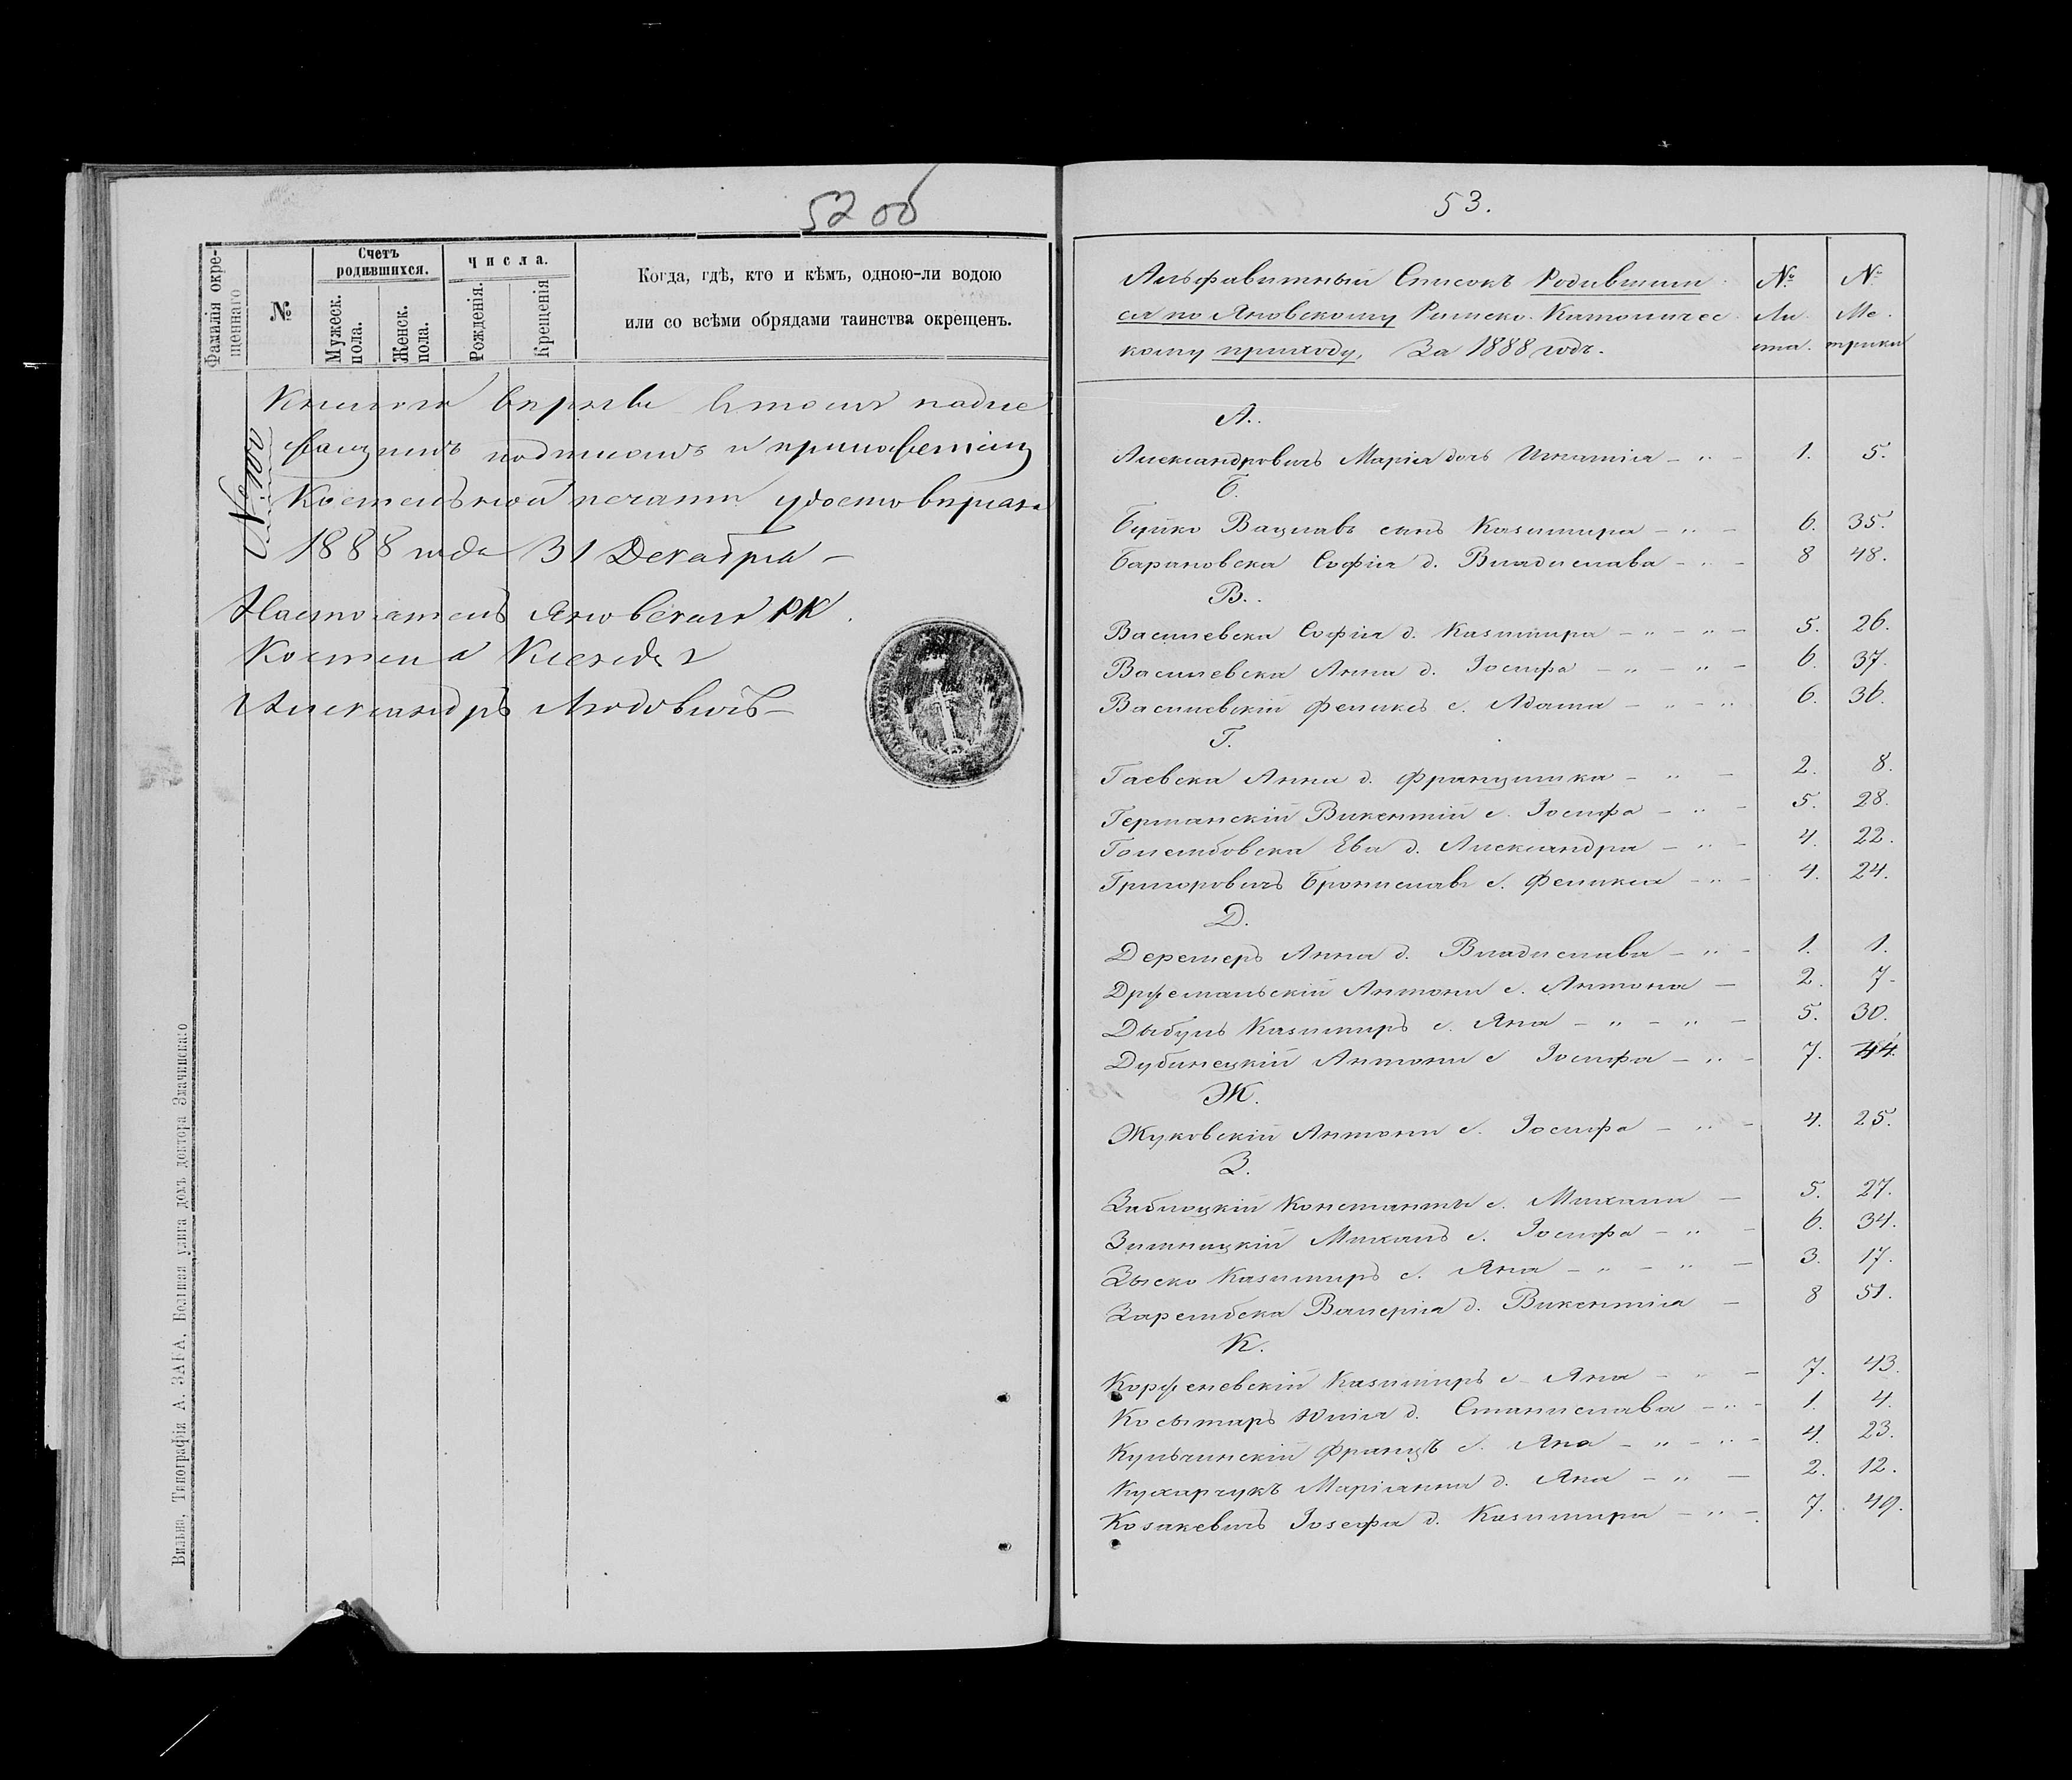 52 об
Фамилія окрещеннаго
№
Счетъ родившихся.
Мужеск. пола.
Женск. пола.
Числа.
Рожденія.
Крещенія
Когда, гдѣ, кто и кѣмъ, одною-ли водою
или со всѣми обрядами таинства окрещенъ.
вѣрна въ томъ надле
жащимъ подписомъ и приложеніемъ
Костельной печати удостовѣряю
1888 года 31 Декабря –
Настоятель Яновскаго РК.
Костела Ксендзъ
Александръ
Вильна, Типографія А. ЗАКА, Большая улица домъ доктора Значинскаго
53.
Альфавитный Списокъ Родившим
ся по Яновскому Римско-Католичес
кому приходу, За 1888 годъ.
№ Ли ста.
№ Ме трики
А.
Александровичъ Марія дочь Игнатія – " – 1. 5.
Б.
Буйко Вацлавъ сынъ Казимира – " – 6. 35.
Барановска Софія д. Владислава – " – 8 48.
В.
Василевска Софія д. Казимира – " – " – 5. 26.
Василевска Анна д. Іосифа – " – " – 6. 37.
Василевскій Феликсъ с. Адама – " – " 6. 36.
Г.
Гаевска Анна д. Францишка – " – 2. 8.
Германскій Викентій с. Іосифа – " – 5. 28.
Голембовска Ева д. Александра – " – 4. 22.
Григоровичъ Брониславъ с. Феликса – " – 4. 24.
Д.
Деремеръ Анна д. Владислава – " – 1. 1.
Држемальскій Антони с. Антона – 2. 7.
Дыбуль Казимиръ с. Яна – " – " – 5. 30.
Дубинецкій Антони с Іосифа – " – 7. 44.
Ж.
Жуковскій Антони с. Іосифа – " – 4. 25.
З.
Заблоцкій Константы с. Михала – 5. 27.
Зимницкій Михалъ с. Іосифа – " – 6. 34.
Зыско Казимиръ с. Яна – " – " – 3. 17.
Зарембска Валерія д. Викентія – 8 51.
К.
Корженевскій Казимиръ с Яна – " – 7. 43.
Косытаръ Юлія д. Станислава – " – 1. 4.
Кульчинскій Францъ с. Яна – " – " – 4. 23.
Кухарчукъ Маріанна д. Яна – " – 2. 12.
Козакевичъ Іозефа д. Казимира – " – 7. 49.